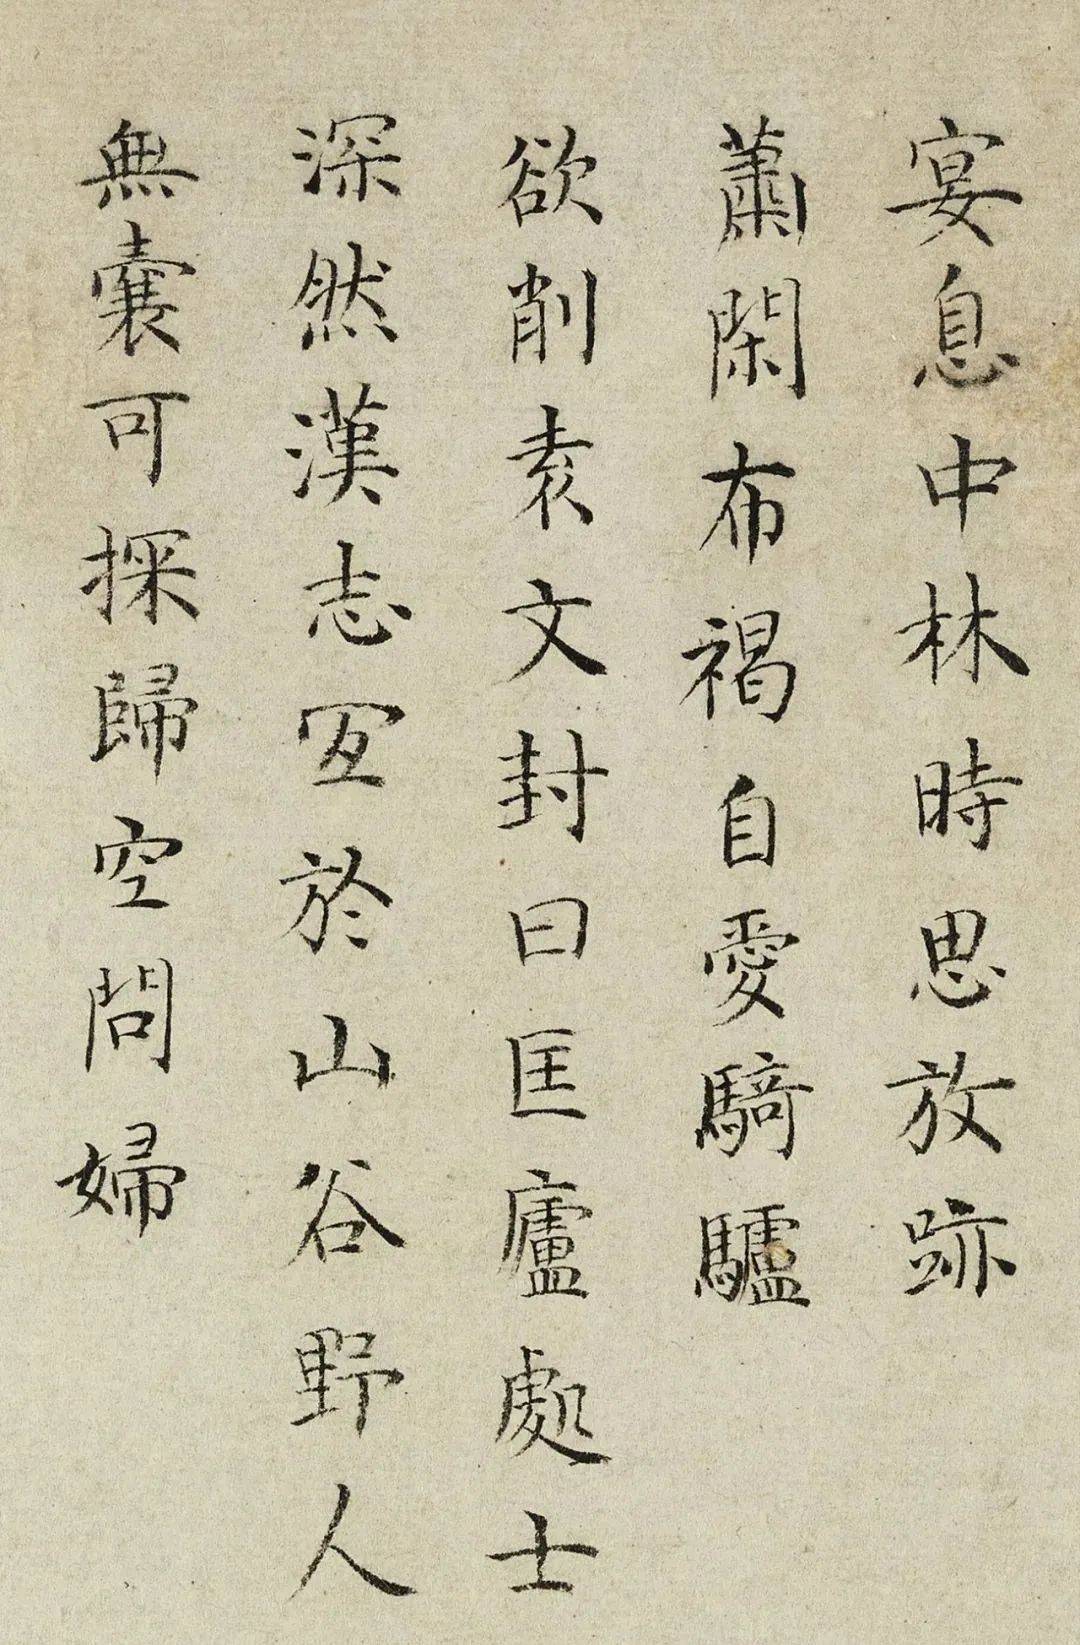 宴息中林時思放跡
蕭閑布褐自愛騎驢
欲削素文封曰匡廬處士
深然漢志冝於山谷野人
無囊可探歸空問婦